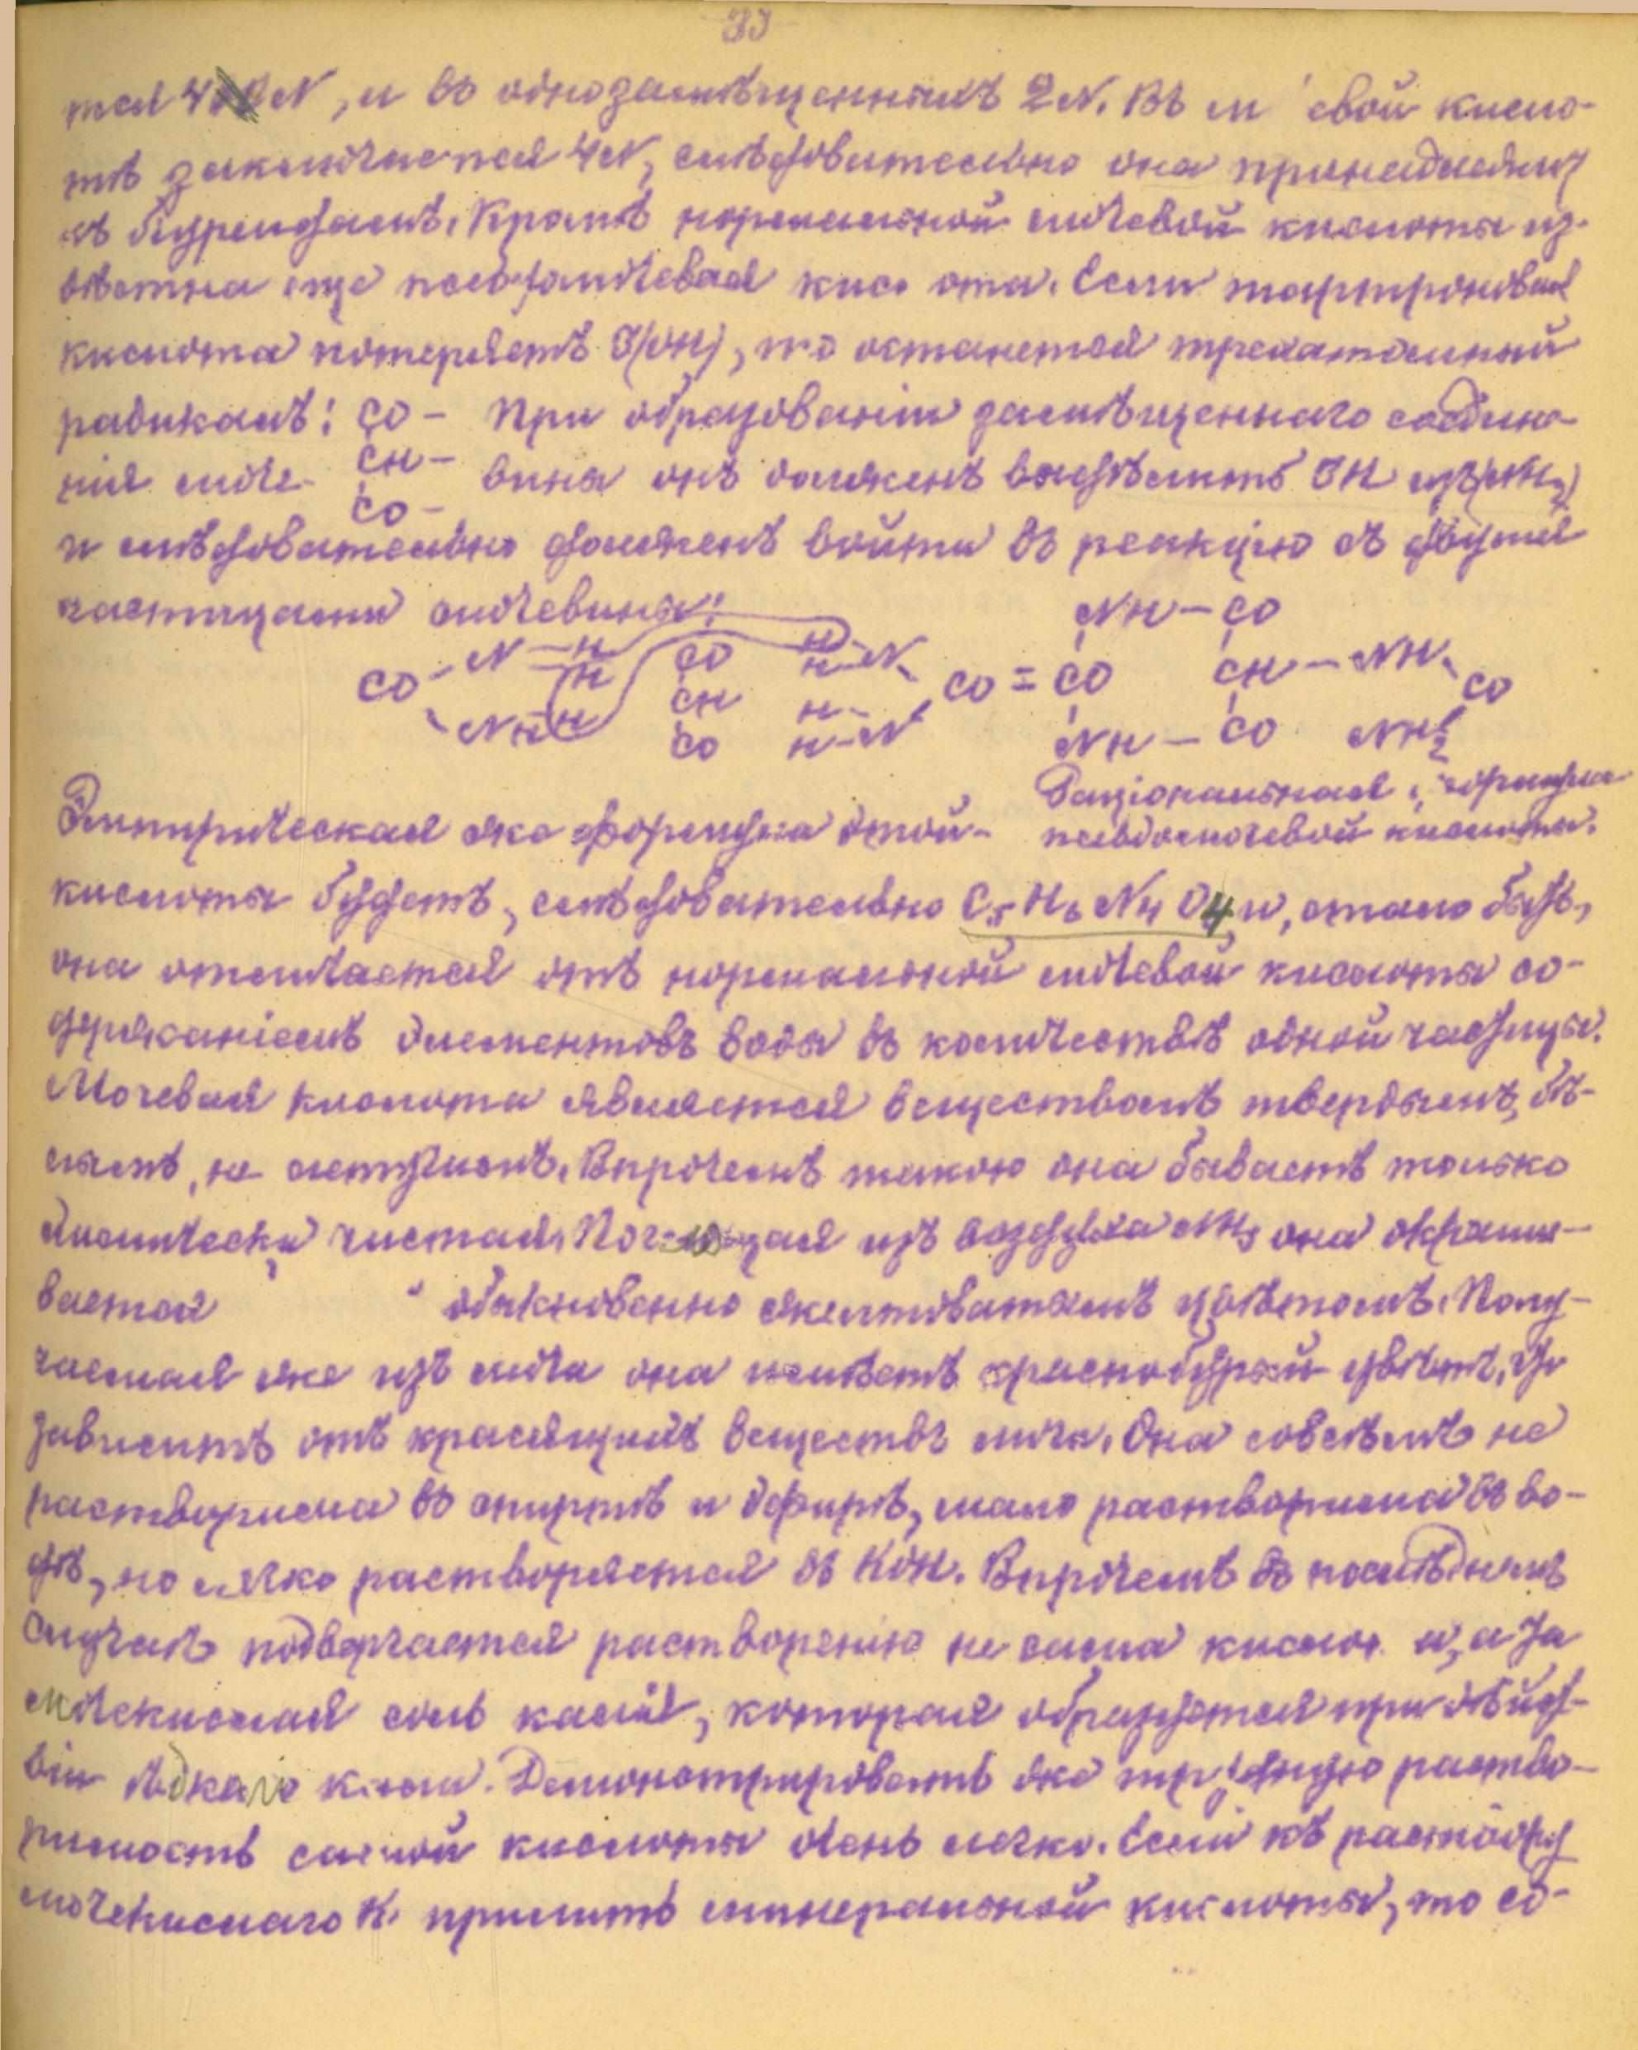 33
тся 4 N, и въ однозамѣщенныхъ 2N. Въ м евой кисло-
тѣ заключается 4N, слѣдовательно она принадлежитъ
къ биуреидамъ. Кромѣ нормальной мочевой кислоты из-
вѣстна еще псевдомочевая кис ота. Если тартроновая
кислота потеряетъ 3(ОН), то останется трехатомный
радикалъ: CO - При образованіи замѣщеннаго соедине-
CH -
нія моче- вины онъ долженъ выдѣлить 3Н изъ (NH2)
CO -
и слѣдовательно долженъ войти въ реакцію съ двумя
частицами мочевины:
NH - CO
N - H CO H - N
H CH H
CO CO = CO CH - NH CO
NH H CO H - N
NH - CO NH2
Раціональная формула
Эмпирическая же формула этой- псевдомочевой кислоты.
кислоты будетъ, слѣдовательно C5 H6 N4 O4 и, стало быть,
она отличается отъ нормальной мочевой кислоты со-
держаніемъ элементовъ воды въ количествѣ одной частицы.
Мочевая кислота является веществомъ твердымъ, бѣ-
лымъ, не летучимъ. Впрочемъ такою она бываетъ только
химически чистая. Поглощая изъ воздуха NH3 она окраши-
вается обыкновенно желтоватымъ цвѣтомъ. Полу-
чаемая же изъ мочи она имѣетъ краснобурый цвѣтъ. Эт
зависитъ отъ красящихъ веществъ мочи. Она совсѣмъ не
растворима въ спиртѣ и эфирѣ, мало растворима въ во-
дѣ, но легко растворяется въ КОН. Впрочемъ въ послѣднемъ
случаѣ подвергается растворенію не сама кислот а, а
мочекислая соль калія, которая образуется при дѣйст-
віи ѣдкаго кали. Демонстрировать же трудную раство-
римость самой кислоты очень легко. Если къ раствору
мочекислаго К. прилить минеральной кислоты, то об-